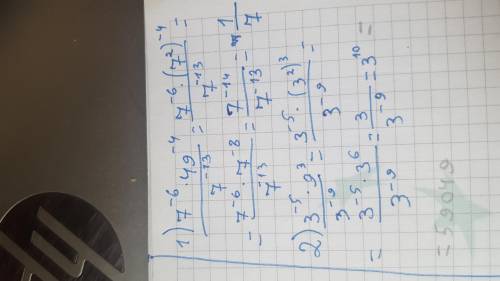 1) (7⁻⁶ · 49⁻⁴)/7⁻¹³ = (7⁻⁶ · (7²)⁻⁴)/7⁻¹³ =
= (7⁻⁶ · 7⁻⁸)/7⁻¹³ = 7⁻¹⁴/7⁻¹³ = 1/7
2) (3⁻⁵ · 9³)/3⁻⁹ = (3⁻⁵ · (3²)³)/3⁻⁹ =
= (3⁻⁵ · 3⁶)/3⁻⁹ = 3/3⁻⁹ = 3¹⁰ =
= 59049